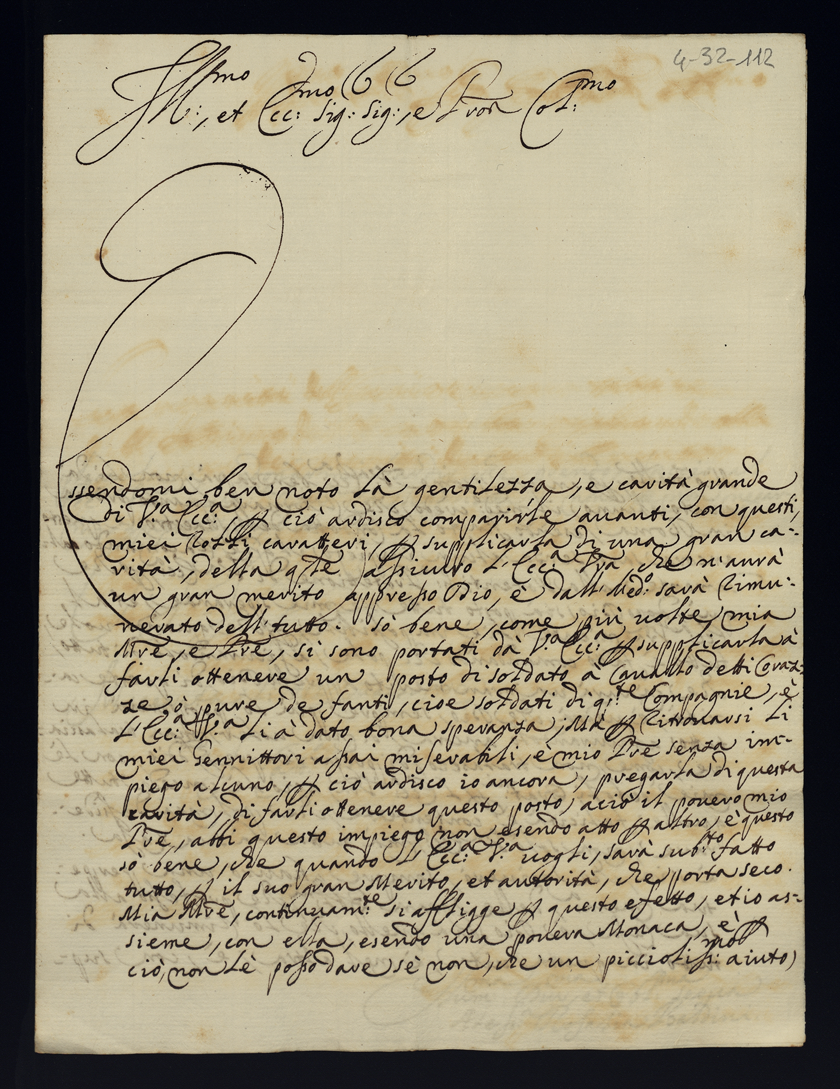 4-32-112
Ill:mo, et Ecc:mo Sig: Sig:, e Pron Col:mo
Essendomi ben noto là gentilezza, e carità grande
di V:a Ecc:a, p ciò ardisco comparirle auanti, con questi,
miei rozzi caratteri, p supplicarla di una gran ca-
rità, della qle assicuro l'Ecc:a Vra, che n'aurà
un gran merito appresso Dio, è dall'Med:o sarà rimu-
nerato dell'tutto. sò bene, come più uolte, mia
Mre, e Pre, si sono portati dà V:a Ecc:a p supplicarla à
farli ottenere un posto di soldato à Cauallo detti Coraz-
ze, ò pure de fanti, cioe soldati di q:te Compagnie, è
L'Ecc:a V:a li à dato bona speranza; Mà p ritrouarsi li
miei Gennittori assai miserabili, è mio Pre senza im-
piego alcuno, p ciò ardisco io ancora, pregarla di questa
carità, di farli ottenere questo posto, aciò il pouero mio
Pre, abbi questo impiego non esendo atto p altro, è questo
sò bene, che quando L'Ecc:a V:a uogli, sarà sub:to fatto
tutto, p il suo gran Merito, et autorità, che porta seco.
Mia Mre, continuam:te si affligge p questo efetto, et io as-
sieme, con ella, esendo una pouera Monaca, è p
ciò, non lè posso dare sè non, che un picciolis:mo aiuto,